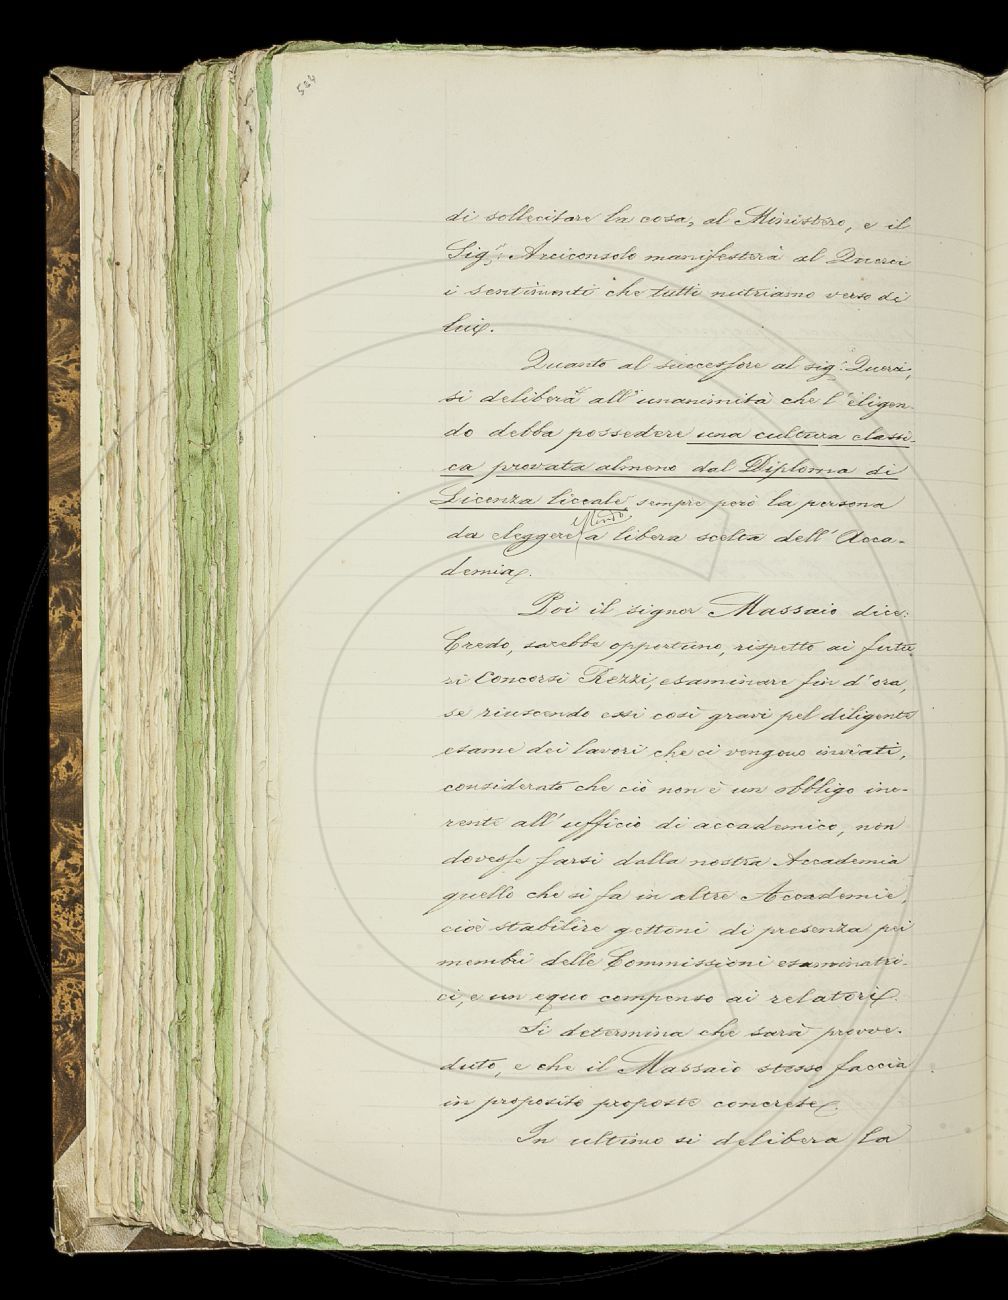 524
di sollecitare la cosa, al Ministero, e il
Sig.r Arciconsolo manifesterà al Querci
i sentimenti che tutti nutriamo verso di
lui.
Quanto al successore al sig.r Querci,
si deliberà all'unanimità che l'eligen-
do debba possedere una cultura classi-
ca provata almeno dal Diploma di
Licenza liceale sempre però la persona
essendo
da eleggere a libera scelta dell'Acca-
demia.
Poi il signor Massaio dice:
Credo, sarebbe opportuno, rispetto ai futu-
ri Concorsi Rezzi, esaminare fin d'ora,
se riuscendo essi così gravi pel diligente
esame dei lavori che ci vengono inviati,
considerato che ciò non è un obbligo ine-
rente all'ufficio di accademico, non
dovesse farsi dalla nostra Accademia
quello che si fa in altre Accademie,
cioè stabilire gettoni di presenza pei
membri delle Commissioni esaminatri-
ci, e un equo compenso ai relatori.
Si determina che sarà provve-
duto, e che il Massaio stesso faccia
in proposito proposte concrete.
In ultimo si delibera la